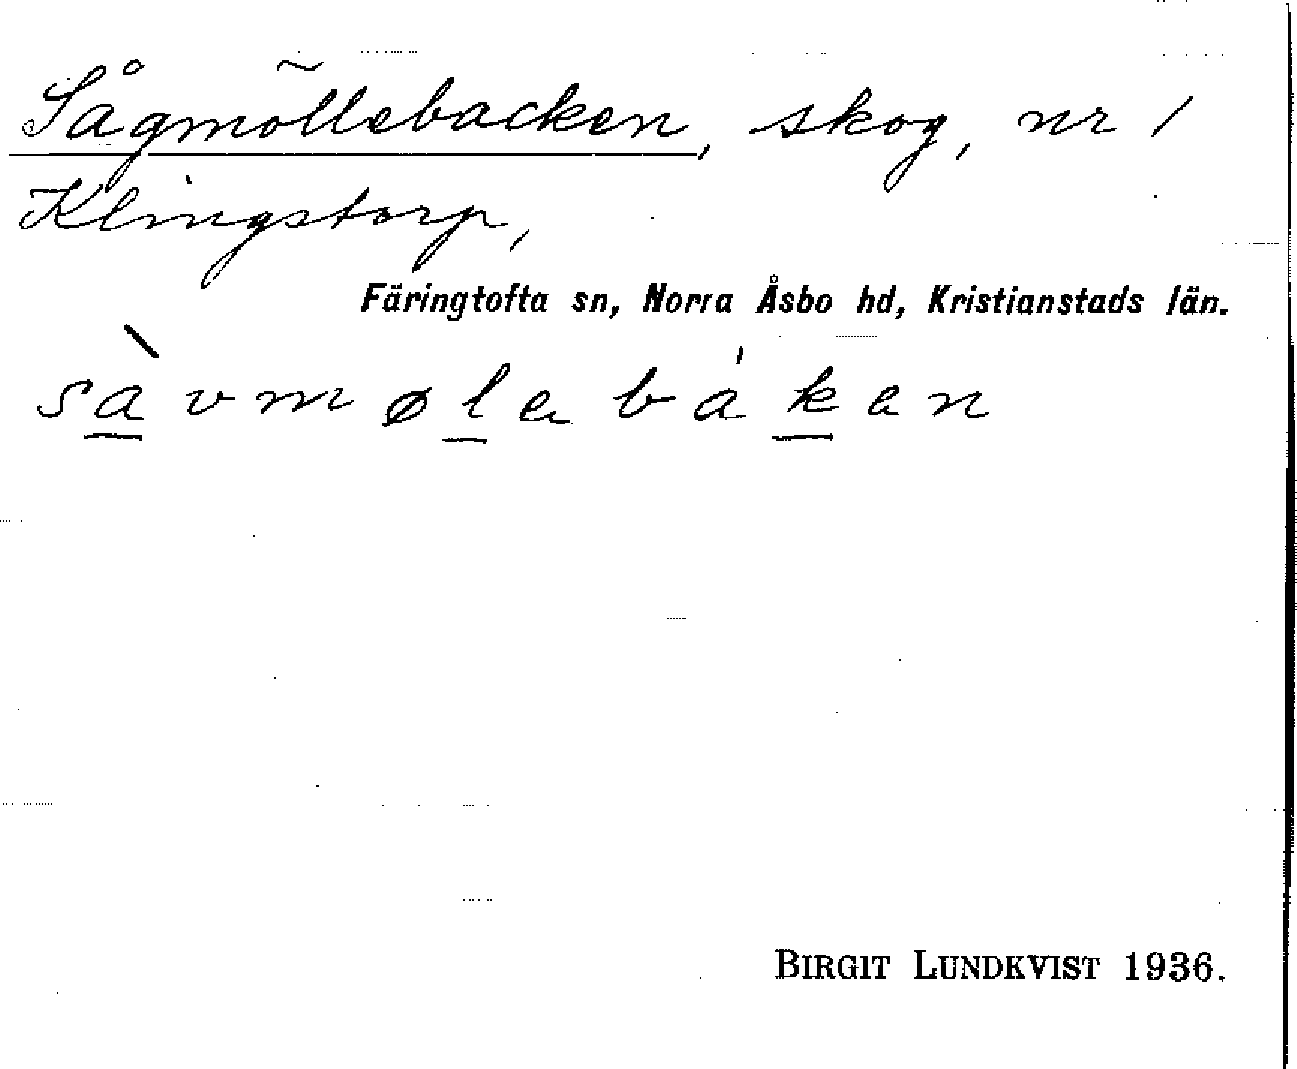 Sågmöllebacken, skog, nr 1
Klingstorp,
Färingtofta sn, Norra Åsbo hd, Kristianstads län.
sàvmøleba̍ken
BIRGIT LUNDKVIST 1936.